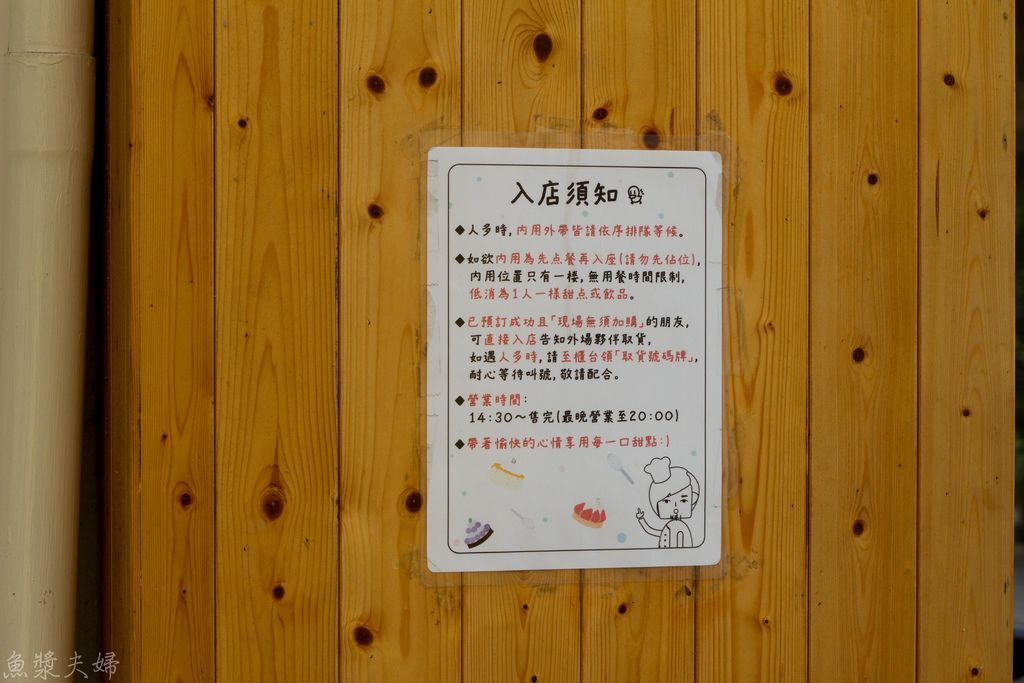 入店須知
◆人多時,內用外帶皆請依序排隊等候。
◆如欲內用為先点餐再入座(請勿先佔位),
內用位置只有一樓,無用餐時間限制,
低消為1人一樣甜点或飲品。
◆已預訂成功且「現場無須加購」的朋友,
可直接入店告知外場夥伴取貨,
如遇人多時,請至櫃台領「取貨號碼牌」,
耐心等待叫號,敬請配合。
◆營業時間:
14:30～售完(最晚營業至20:00)
◆帶著愉快的心情享用每一口甜點:)
魚漿夫婦